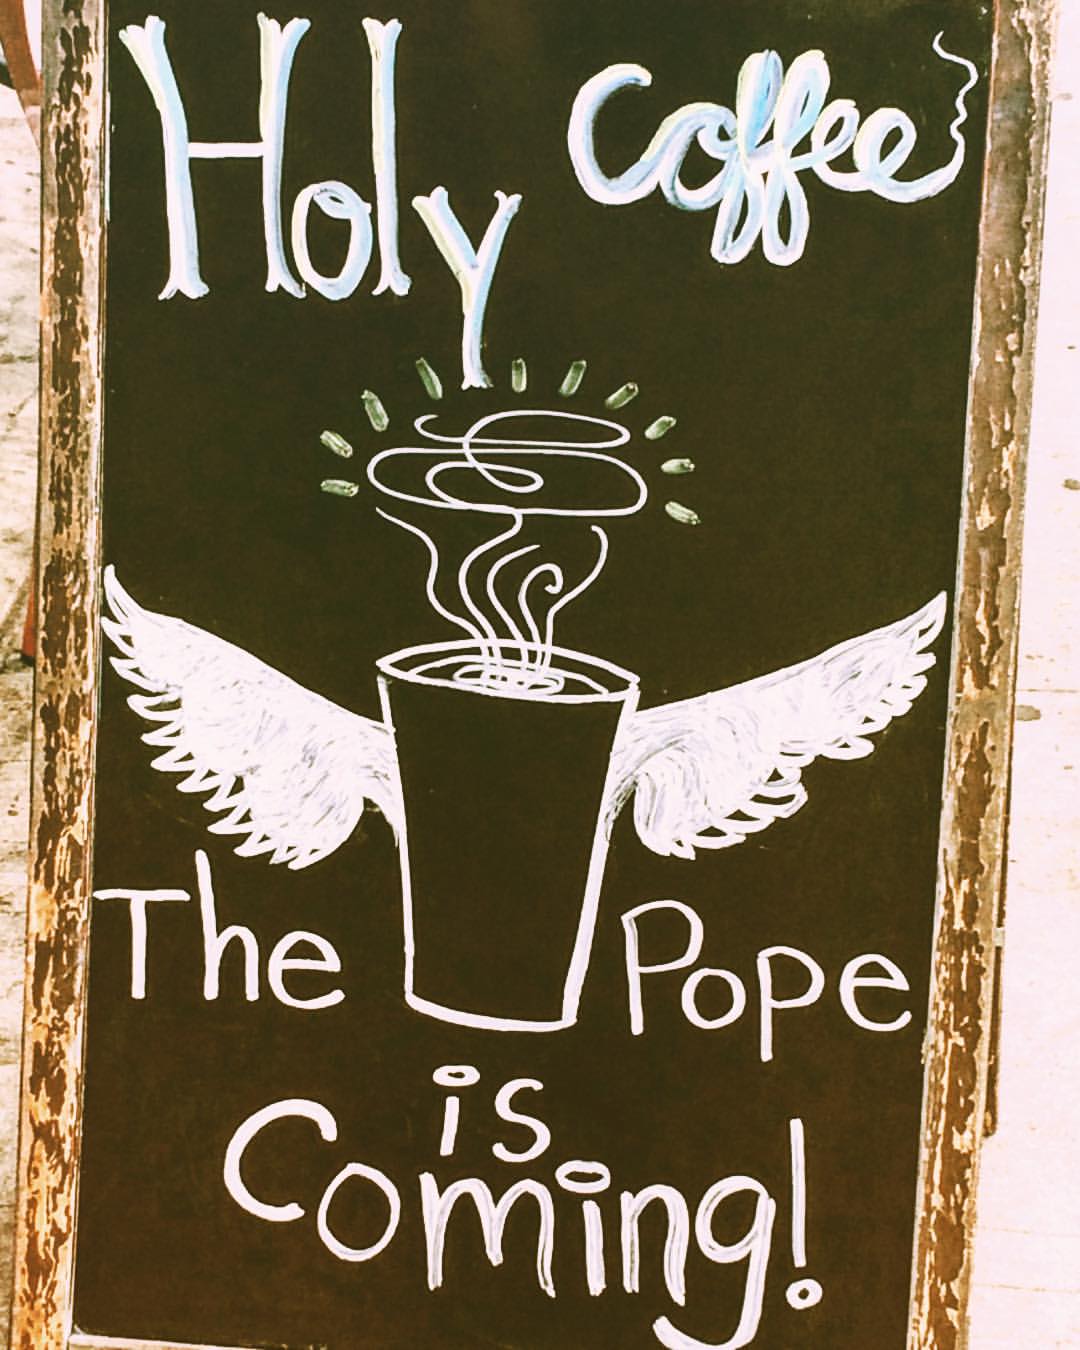 Holy Coffee
The Pope
is
Coming!